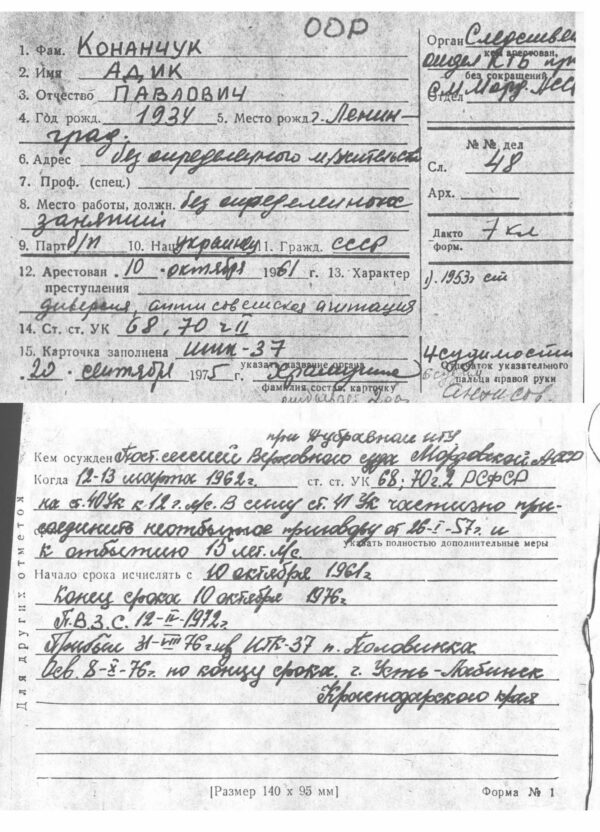 ООР
1. Фам. КОНАНЧУК
2. Имя АДИК
3. Отчество ПАВЛОВИЧ
4. Год рожд. 1934 5. Место рожд. г. Ленин-
град.
6. Адрес без определенного м/жительства
7. Проф. (спец.)
8. Место работы, должн. без определенных
занятий
9. Парт. б/п 10. Нац. украинец 11. Гражд. СССР
12. Арестован 10 октября 1961 г. 13. Характер
преступления
диверсия, антисоветская агитация
14. Ст. ст. УК 68, 70 ч II
15. Карточка заполнена ИТК-37
указать название органа
20 сентября 1975 г.
фамилия состав. карточку
Орган Следствен
кем арестован,
отдел КГБ при
без сокращений
СМ Морд. АССР
Отдел
№ № дел
Сл. 48
Арх.
Дакто 7 кл
форм.
1). 1953г ст
4 судимости
Отпечаток указательного
пальца правой руки
при Дубравном ИТУ
Кем осужден Пост. сессией Верховного суда Мордовской АССР
Когда 12-13 марта 1962г. ст. ст. УК 68; 70 ч. 2 РСФСР
на ст. 40 Ук к 12 г. л/с. В силу ст. 41 Ук частично при-
соединить неотбытое приговору от 26-I-57г. и
к отбытию 15 лет. л/с
указать полностью дополнительные меры
Начало срока исчислять с 10 октября 1961г
Конец срока 10 октября 1976г
П.В.З.С. 12-II-1972г.
Прибыл 31-VIII 76г из ИТК-37 п. Половинка
Осв. 8-X-76г. по концу срока, г. Усть-Лабинск
Краснодарского края
Для других отметок
[Размер 140 х 95 мм] Форма № 1